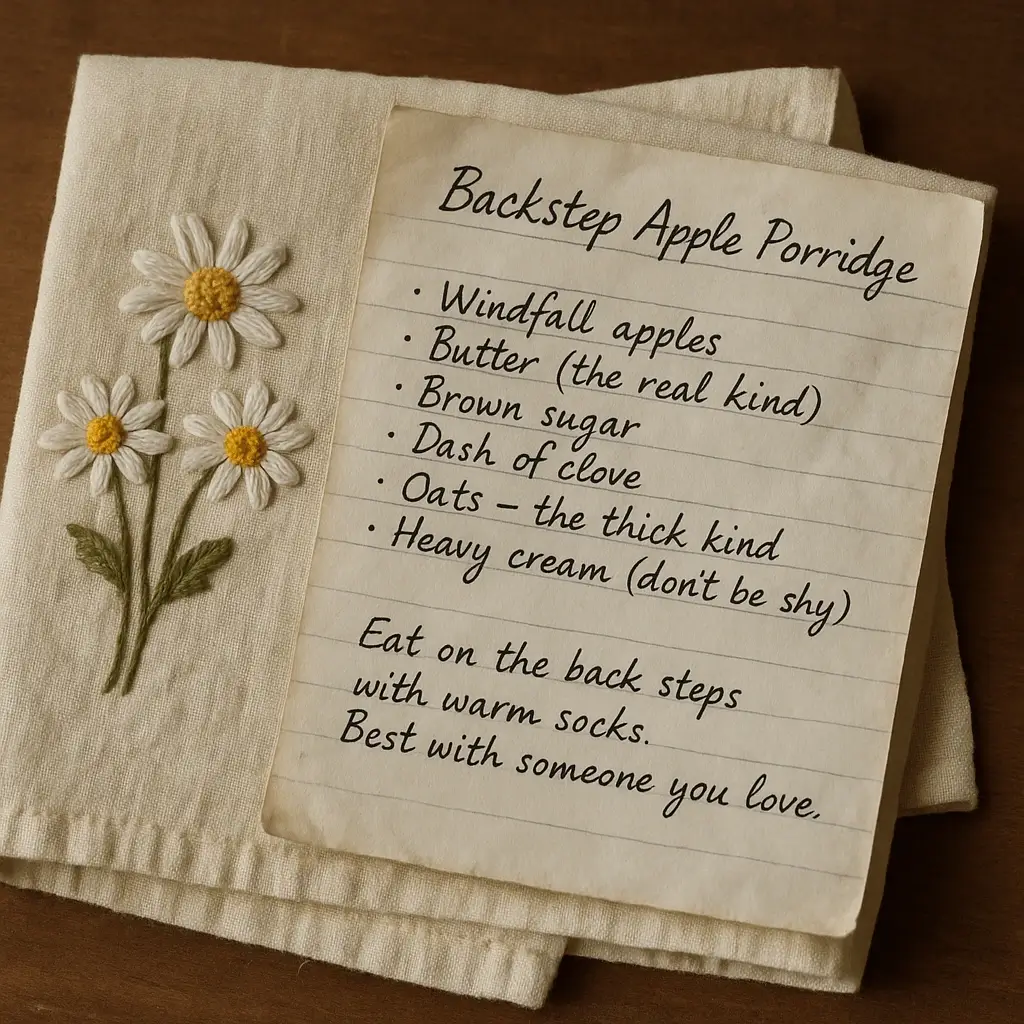 Backstep Apple Porridge
· Windfall apples
· Butter (the real kind)
· Brown sugar
· Dash of clove
· Oats – the thick kind
· Heavy cream (don't be shy)
Eat on the back steps
with warm socks.
Best with someone you love.